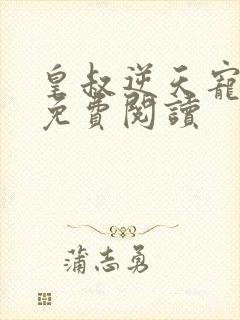 皇叔逆天寵
免費閱讀
蒲志勇